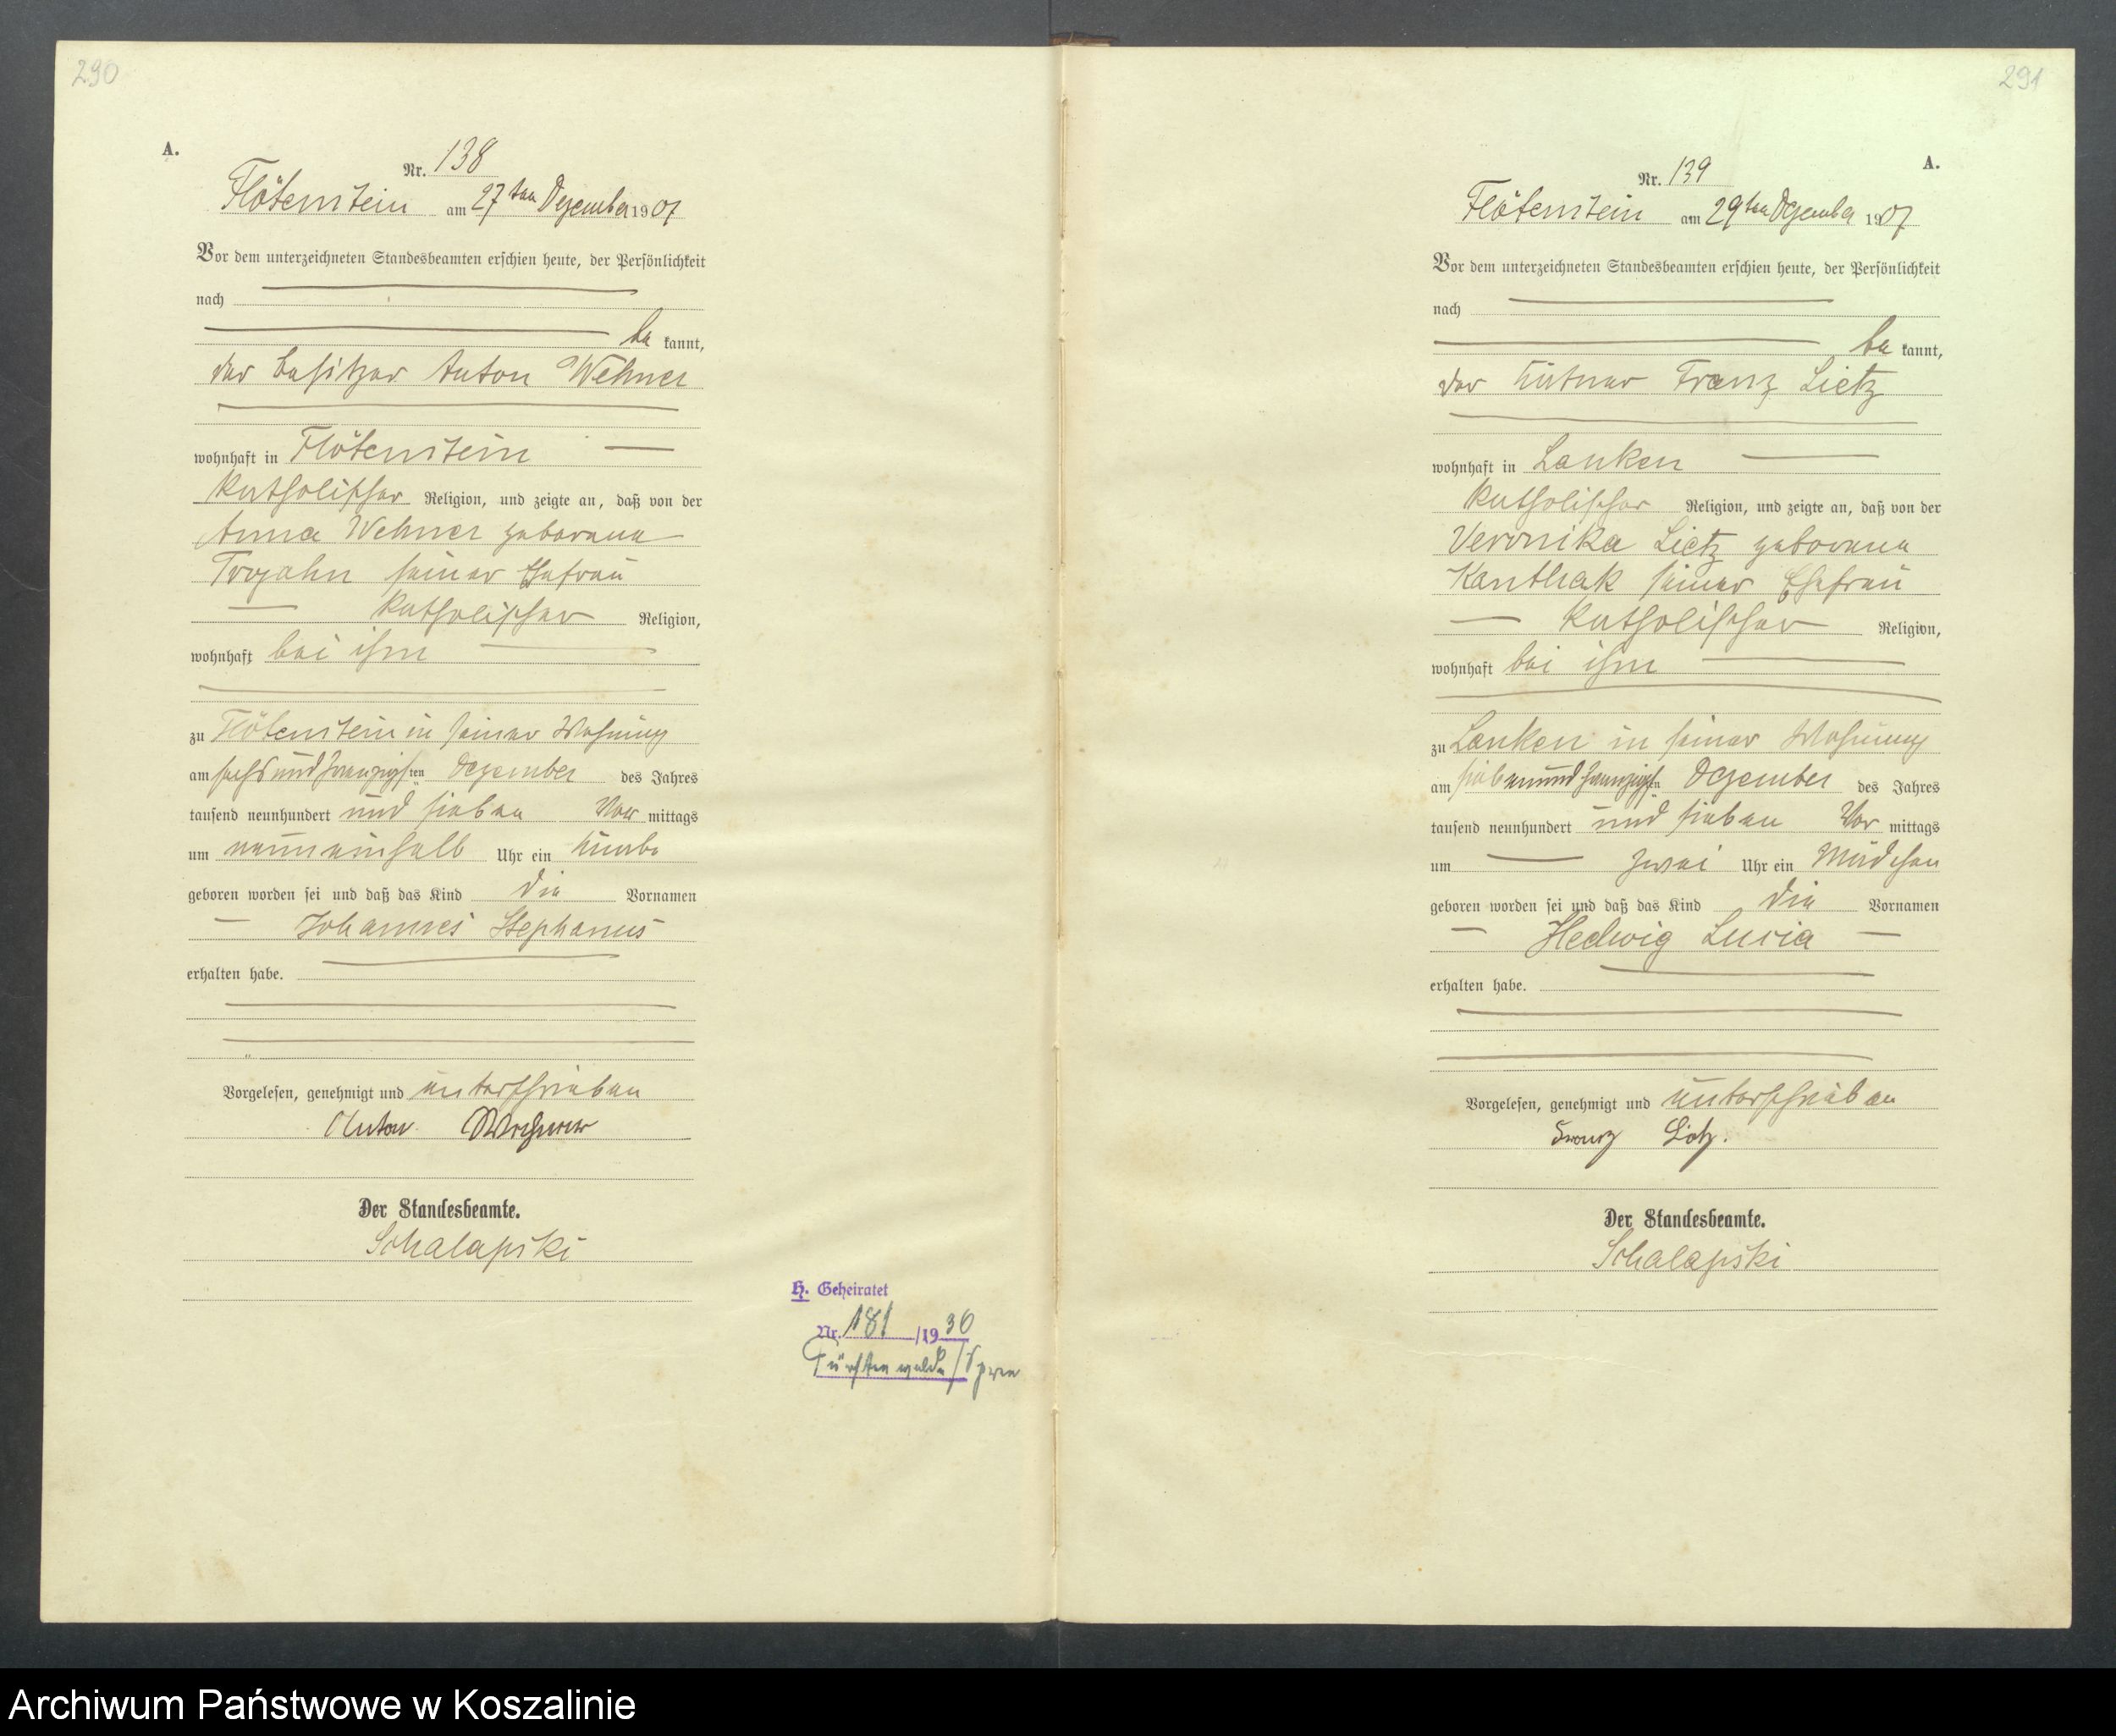 290
A.
Nr. 138
Flötenstein am 27ten Dezember 1907
Vor dem unterzeichneten Standesbeamten erschien heute, der Persönlichkeit
nach
be kannt,
der Besitzer Anton Wehner
wohnhaft in Flötenstein
katholischer Religion, und zeigte an, daß von der
Anna Wehner geborene
Trojahn seiner Ehefrau
katholischer Religion,
wohnhaft bei ihm
zu Flötenstein in seiner Wohnung
am sechsundzwanzigsten Dezember des Jahres
tausend neunhundert und sieben Vor mittags
um neuneinhalb Uhr ein Knabe
geboren worden sei und daß das Kind die Vornamen
Johannes Stephanus
erhalten habe.
Vorgelesen, genehmigt und unterschrieben
Anton Wehner
Der Standesbeamte.
Schalapski
H. Geheiratet
Nr. 181 /1930
Fürstenwalde/Spree
291
A.
Nr. 139
Flötenstein am 29ten Dezember 1907
Vor dem unterzeichneten Standesbeamten erschien heute, der Persönlichkeit
nach
be kannt,
der Kätner Franz Lietz
wohnhaft in Lanken
katholischer Religion, und zeigte an, daß von der
Veronika Lietz geborene
Kanthak seiner Ehefrau
katholischer Religion,
wohnhaft bei ihm
zu Lanken in seiner Wohnung
am siebenundzwanzigsten Dezember des Jahres
tausend neunhundert und sieben Vor mittags
um zwei Uhr ein Mädchen
geboren worden sei und daß das Kind die Vornamen
Hedwig Lucia
erhalten habe.
Vorgelesen, genehmigt und unterschrieben
Franz Lietz.
Der Standesbeamte.
Schalapski
Archiwum Państwowe w Koszalinie